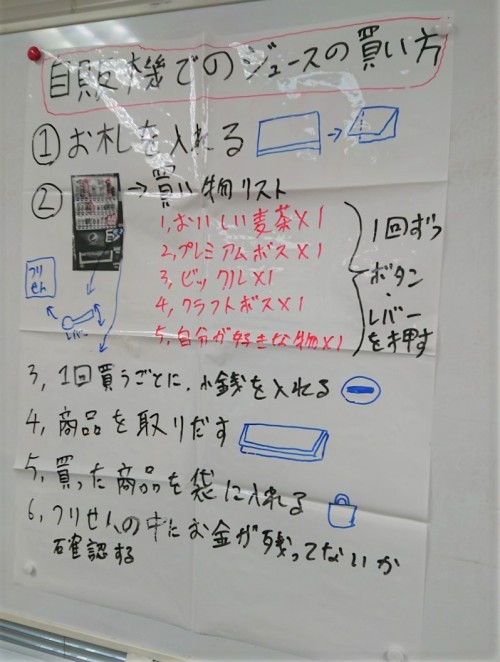 自販機でのジュースの買い方
①お札を入れる
②→買い物リスト
1,おいしい麦茶×1
2,プレミアムボス×1
3,ビックル×1
4,クラフトボス×1
5,自分が好きな物×1
1回ずつ
ボタン・
レバー
を押す
つり
せん
レバー
3,1回買うごとに、小銭を入れる
4,商品を取りだす
5,買った商品を袋に入れる
6,つりせんの中にお金が残ってないか
確認する